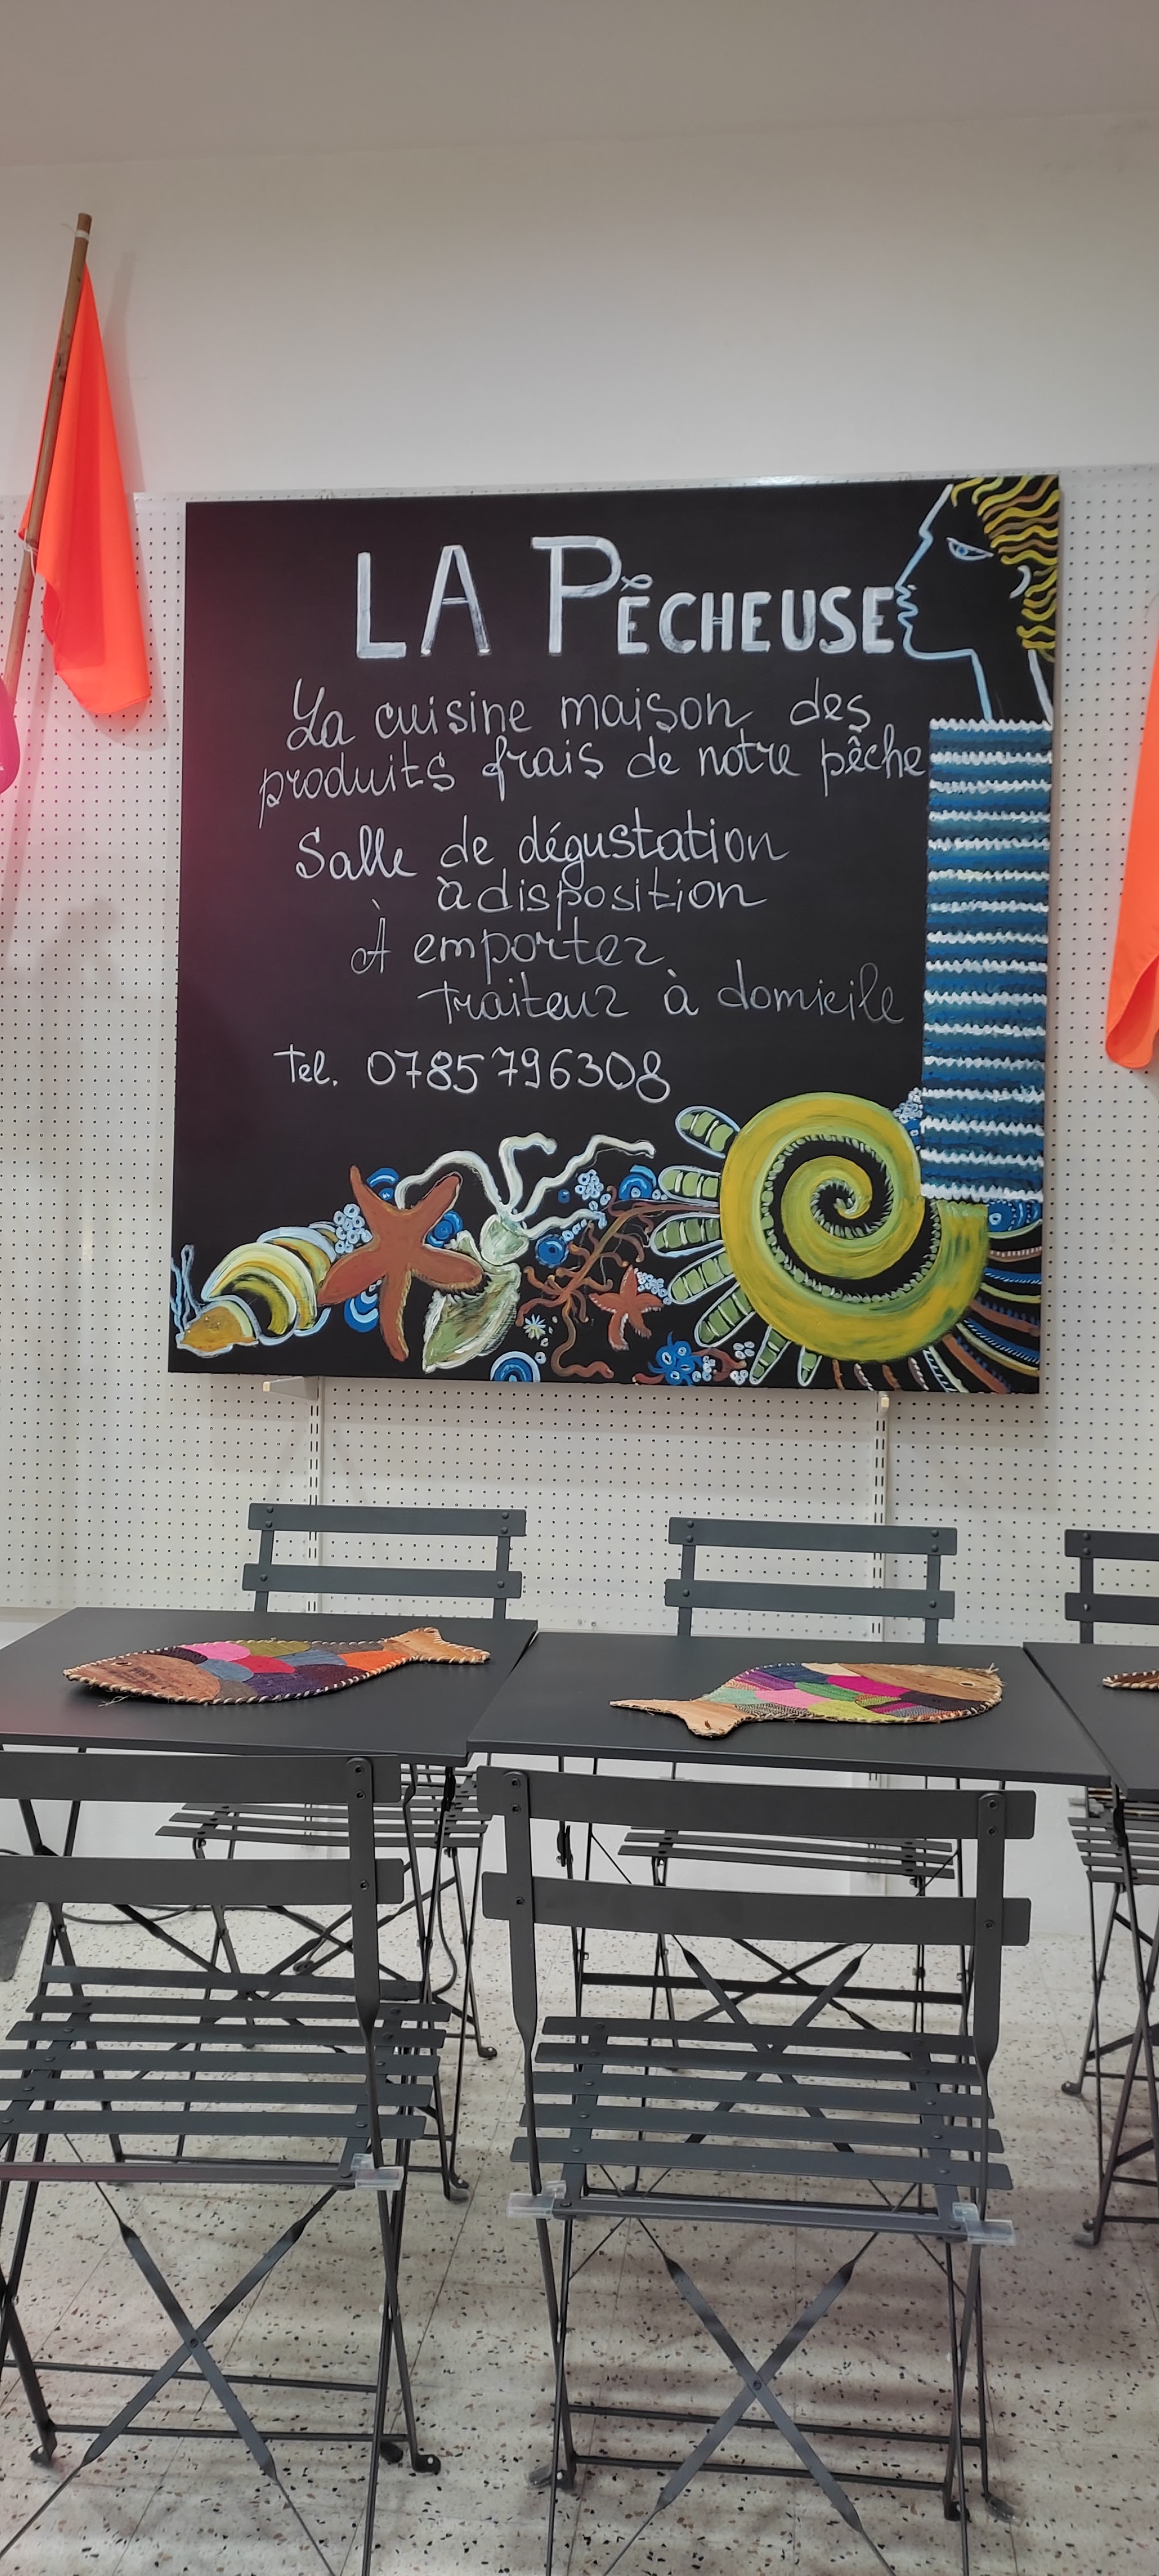 LA PÊCHEUSE
La cuisine maison des
produits frais de notre pêche
Salle de dégustation
à disposition
À emporter
Traiteur à domicile
Tel. 0785796308